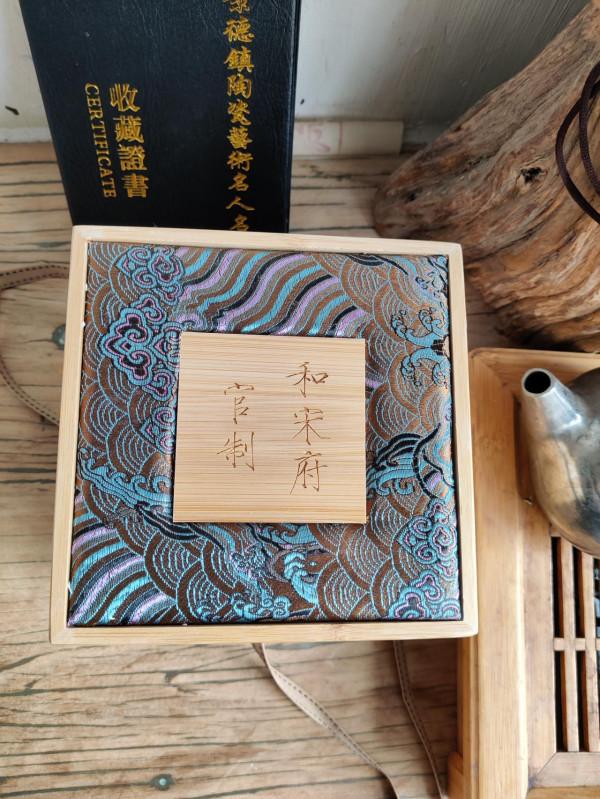 景德鎮陶瓷藝術名人名
收藏證書
CERTIFICATE
和宋府
官制